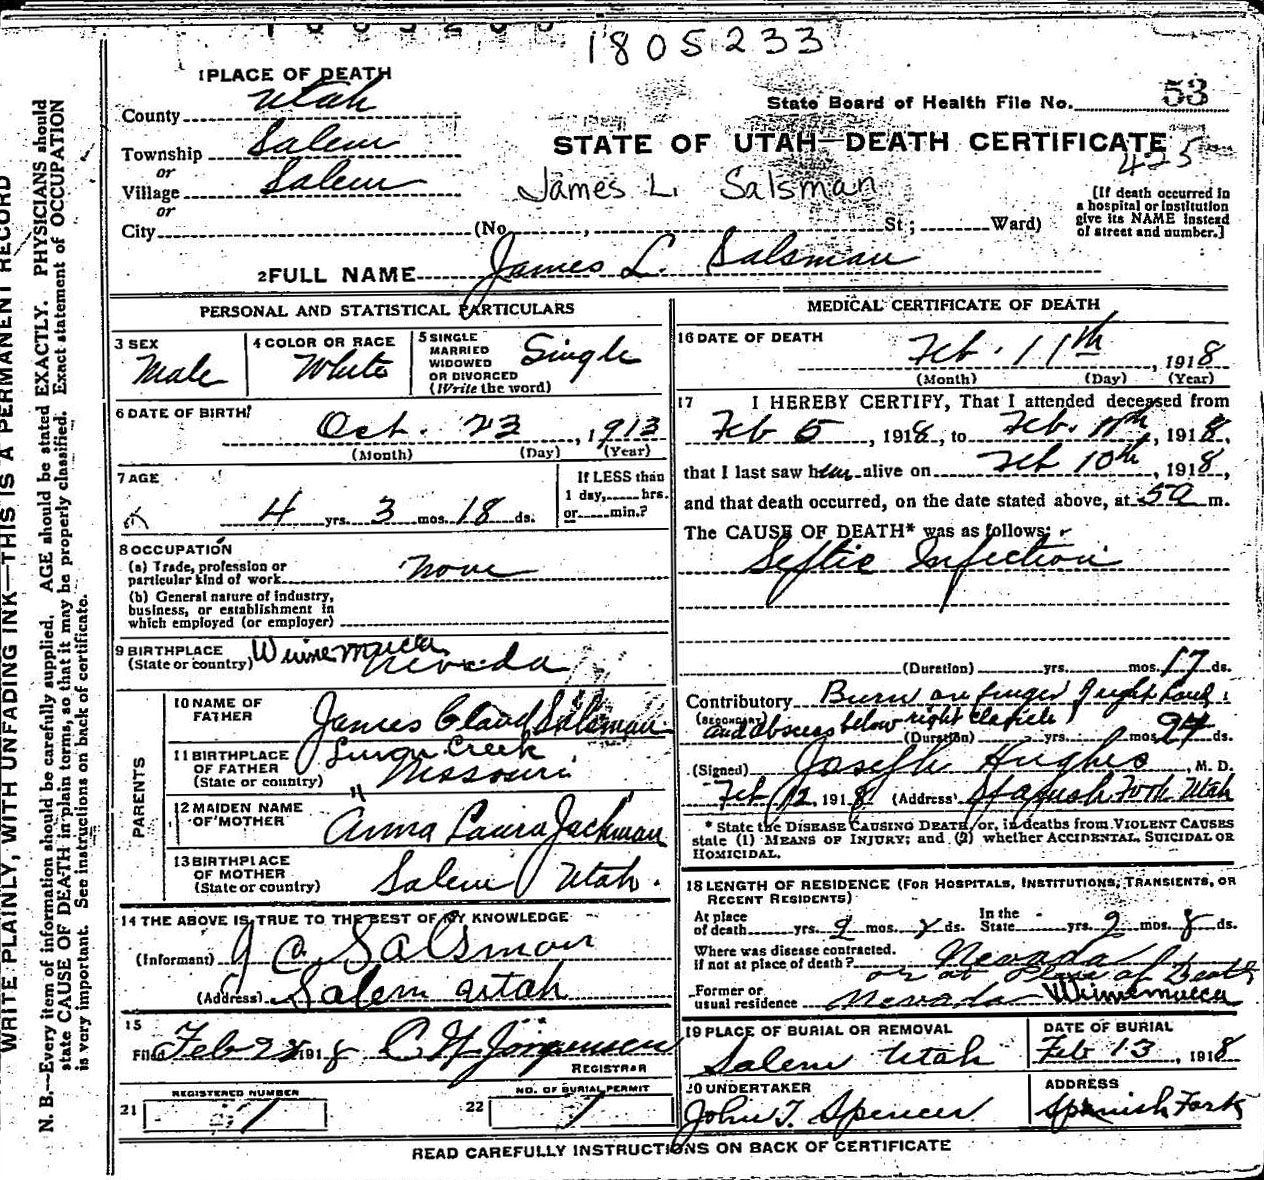 1805233
1 PLACE OF DEATH
County Utah
State Board of Health File No. 53
Township Salem
STATE OF UTAH—DEATH CERTIFICATE
or
425
Village Salem
James L. Salsman
or
[If death occurred in
a hospital or institution
give its NAME instead
of street and number.]
City (No , St; Ward)
2 FULL NAME James L. Salsman
PERSONAL AND STATISTICAL PARTICULARS
3 SEX
Male
4 COLOR OR RACE
White
5 SINGLE
MARRIED
WIDOWED
OR DIVORCED
(Write the word)
Single
6 DATE OF BIRTH
Oct. 23, 1913
(Month) (Day) (Year)
7 AGE
4 yrs. 3 mos. 18 ds.
If LESS than
1 day, hrs.
or min.?
8 OCCUPATION
(a) Trade, profession or
particular kind of work None
(b) General nature of industry,
business, or establishment in
which employed (or employer)
9 BIRTHPLACE
(State or country) Winnemucca
Nevada
PARENTS
10 NAME OF
FATHER James Claud Salsman
11 BIRTHPLACE
OF FATHER
(State or country) Creek
Missouri
12 MAIDEN NAME
OF MOTHER Anna Laura Jackman
13 BIRTHPLACE
OF MOTHER
(State or country) Salem Utah.
14 THE ABOVE IS TRUE TO THE BEST OF MY KNOWLEDGE
(Informant) J C Salsman
(Address) Salem Utah
15
Filed Feb 1918 C N Jorgensen
REGISTRAR
REGISTERED NUMBER
21 1
NO. OF BURIAL PERMIT
22 1
MEDICAL CERTIFICATE OF DEATH
16 DATE OF DEATH
Feb. 11th, 1918
(Month) (Day) (Year)
17 I HEREBY CERTIFY, That I attended deceased from
Feb 5, 1918, to Feb. 11th, 1918,
that I last saw him alive on Feb 10th, 1918,
and that death occurred, on the date stated above, at 5a m.
The CAUSE OF DEATH* was as follows:
Septic Infection
(Duration) yrs. mos. 17 ds.
Contributory Burn on finger of right hand
(SECONDARY) and abscess below right clavicle
(Duration) yrs. mos. ds.
(Signed) Joseph Hughes, M. D.
Feb 12, 1918 (Address) Spanish Fork Utah
* State the DISEASE CAUSING DEATH, or, in deaths from VIOLENT CAUSES
state (1) MEANS OF INJURY; and (2) whether ACCIDENTAL, SUICIDAL OR
HOMICIDAL.
18 LENGTH OF RESIDENCE (FOR HOSPITALS, INSTITUTIONS, TRANSIENTS, OR
RECENT RESIDENTS)
At place
of death yrs. 2 mos. 8 ds.
In the
State yrs. 2 mos. 8 ds.
Where was disease contracted.
if not at place of death? Nevada
or at place of Death
Former or
usual residence Nevada Winnemucca
19 PLACE OF BURIAL OR REMOVAL
Salem Utah
DATE OF BURIAL
Feb 13, 1918
20 UNDERTAKER
John T. Spencer
ADDRESS
Spanish Fork
READ CAREFULLY INSTRUCTIONS ON BACK OF CERTIFICATE
WRITE PLAINLY, WITH UNFADING INK—THIS IS A PERMANENT RECORD
N. B.—Every item of information should be carefully supplied. AGE should be stated EXACTLY. PHYSICIANS should
state CAUSE OF DEATH in plain terms, so that it may be properly classified. Exact statement of OCCUPATION
is very important. See instructions on back of certificate.